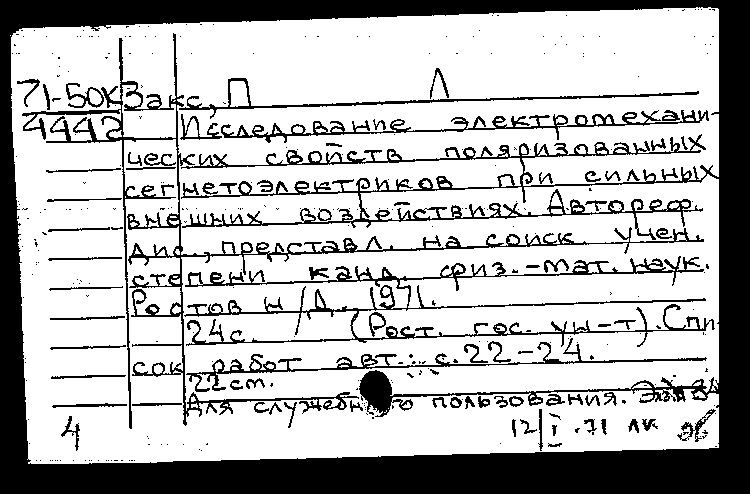 71-50К Закс, П Л
4442 Исследование электромехани-
ческих свойств поляризованных
сегнетоэлектриков при сильных
внешних воздействиях. Автореф.
дис., представл. на соиск. учен.
степени канд. физ.-мат. наук.
Ростов н/Д., 1971.
24с. (Рост. гос. ун-т). Спи-
сок работ авт.: с.22-24.
22cm.
Для служебного пользования.
4 12/I.71 ЛК